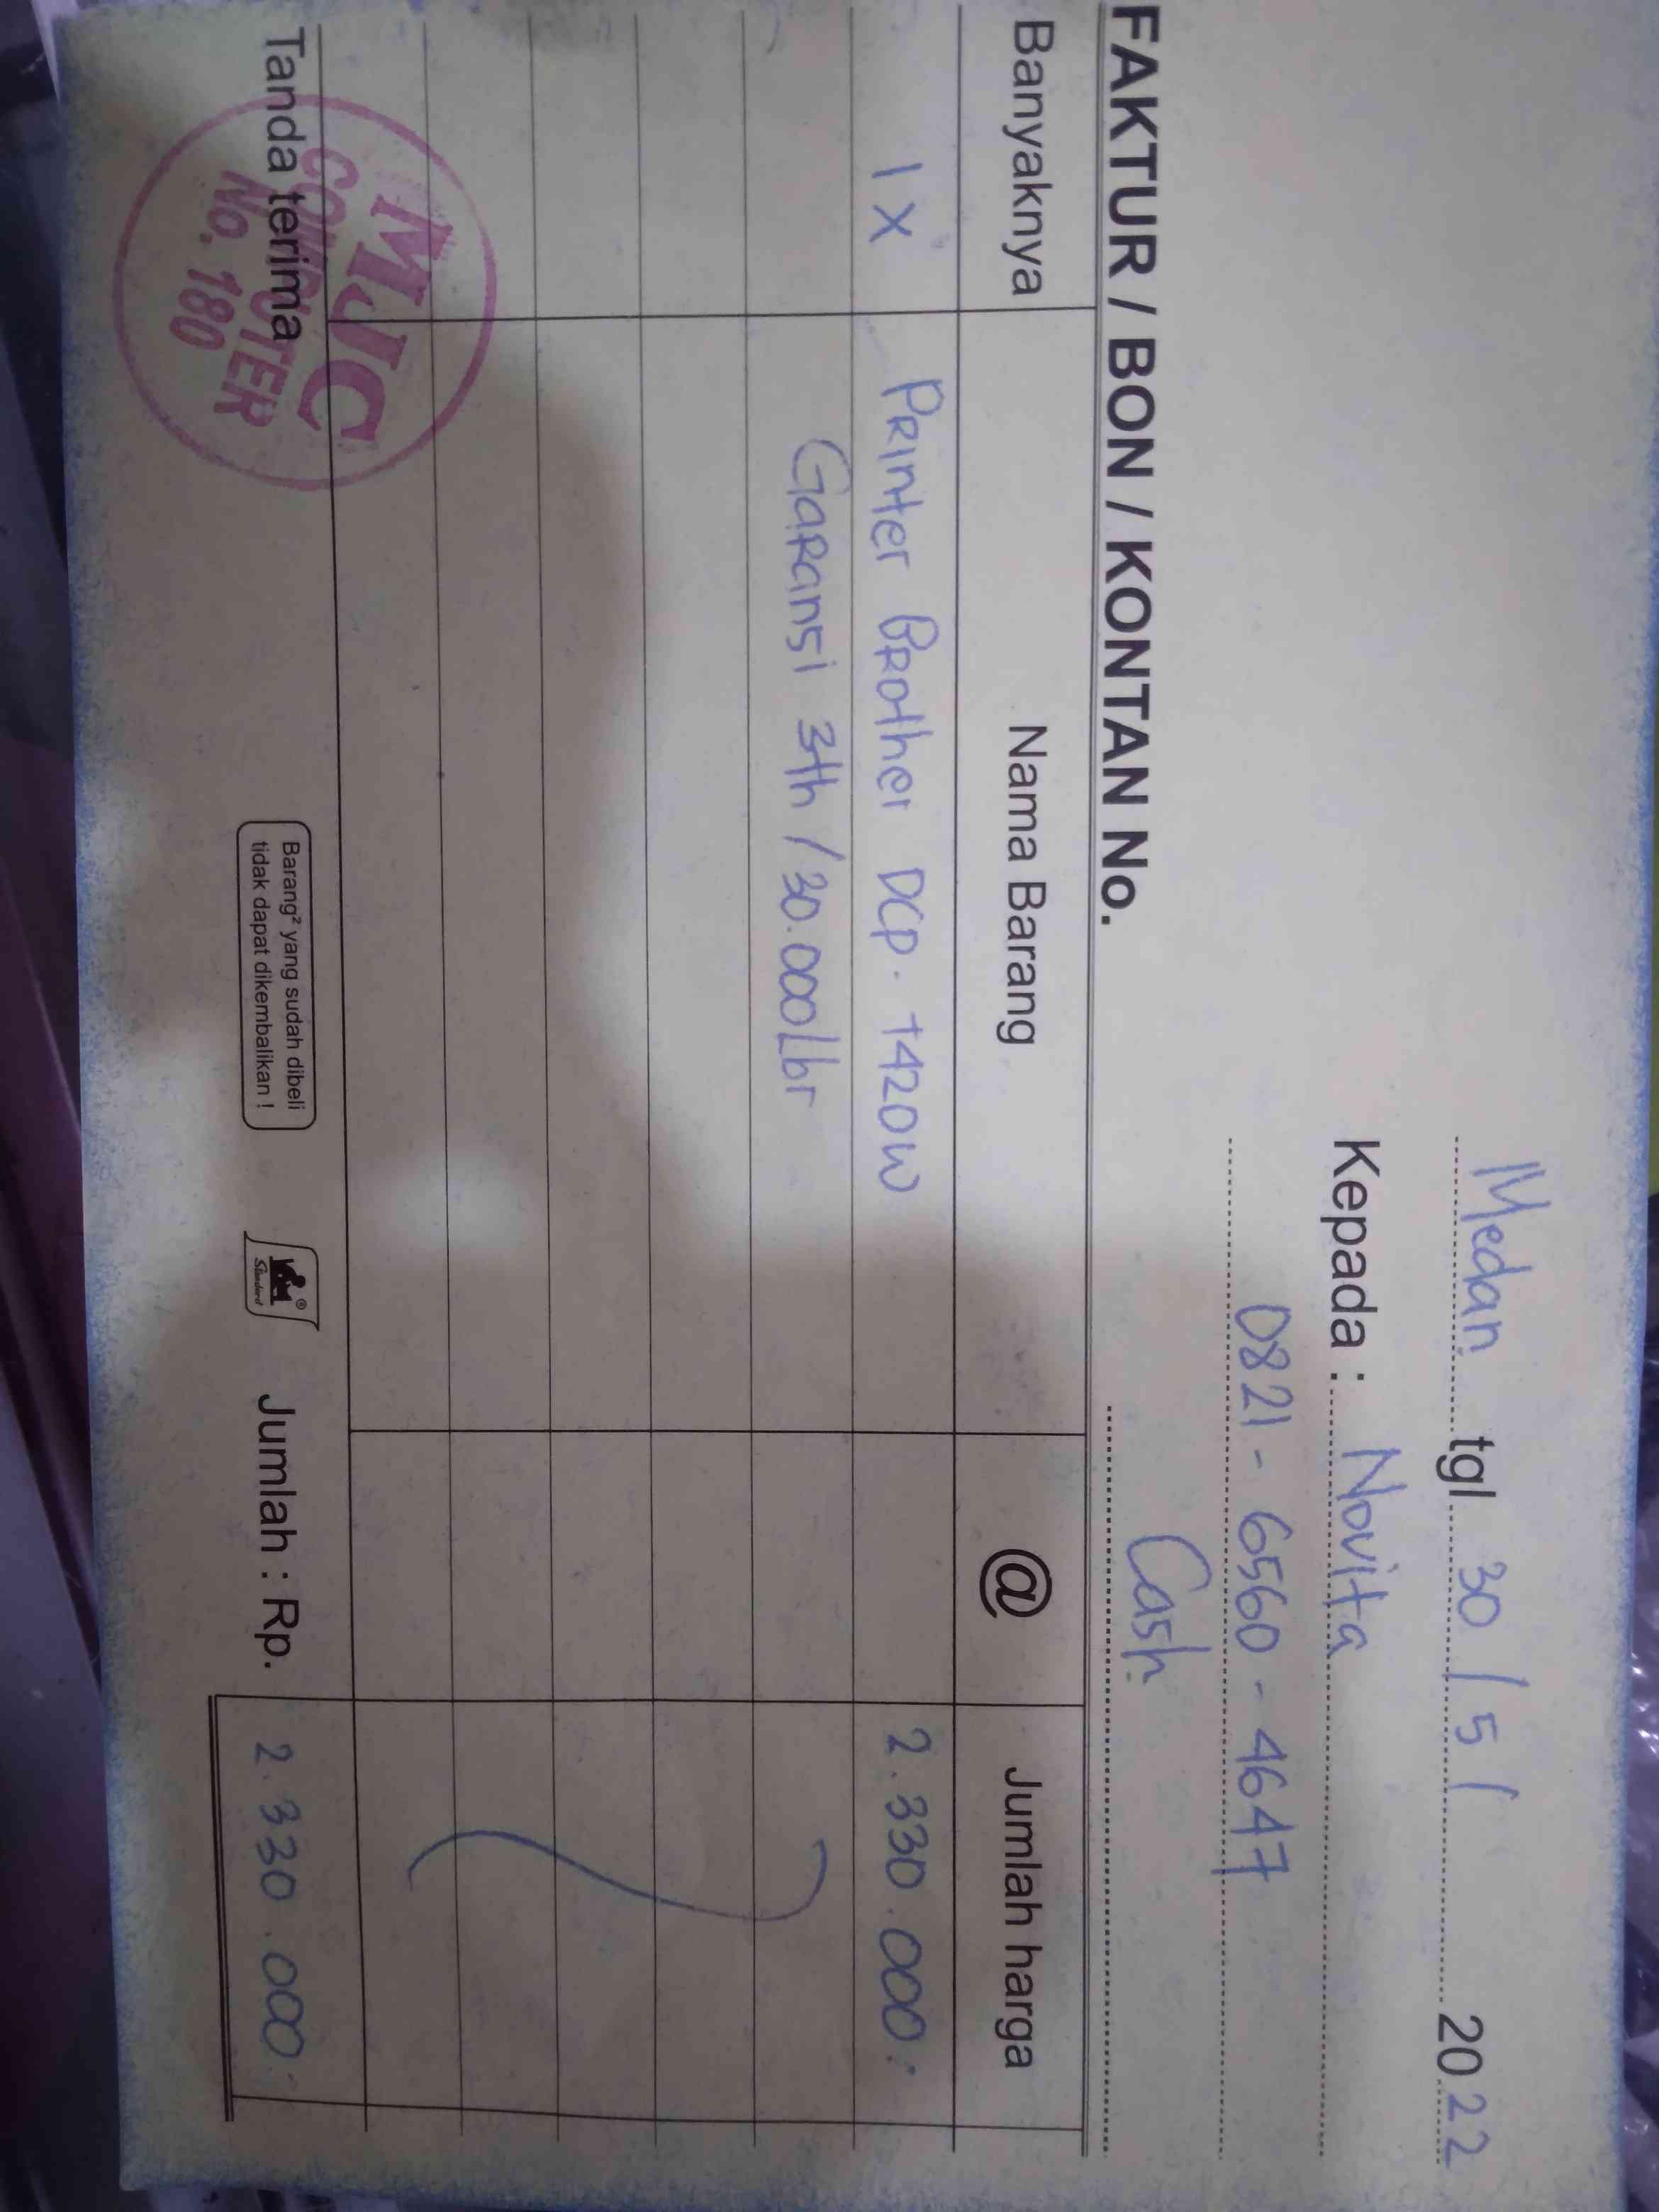 Medan tgl 30 / 5 / 2022
Kepada : Novita
0821 - 6560 - 4647
Cash
FAKTUR / BON / KONTAN No.
Banyaknya Nama Barang @ Jumlah harga
1 X Printer Brother DCP. T420W 2.330.000.-
Garansi 3th / 30.000 Lbr
Tanda terima Jumlah : Rp. 2.330.000.-
MJC
COMPUTER
No. 180
Barang² yang sudah dibeli
tidak dapat dikembalikan !
Standard